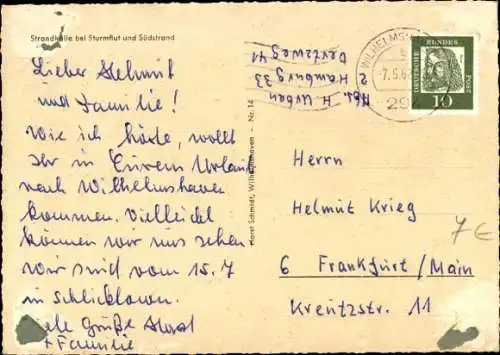 Strandhalle bei Sturmflut und Südstrand
Lieber Helmut
und Familie!
Wie ich höre, wollt
Ihr in Eurem Urlaub
nach Wilhelmshaven
kommen. Vielleicht
können wir uns sehen
Wir sind vom 15.7
in
Viele Grüße Horst
+ Familie
Horst Schmidt, Wilhelmshaven - Nr. 14
Abs. H. Urban
2 Hamburg 33
41
WILHELMS
-7.5.6
294
DEUTSCHE BUNDES POST
10
Herrn
Helmut Krieg
6 Frankfurt/Main
Kreutzstr. 11
7€